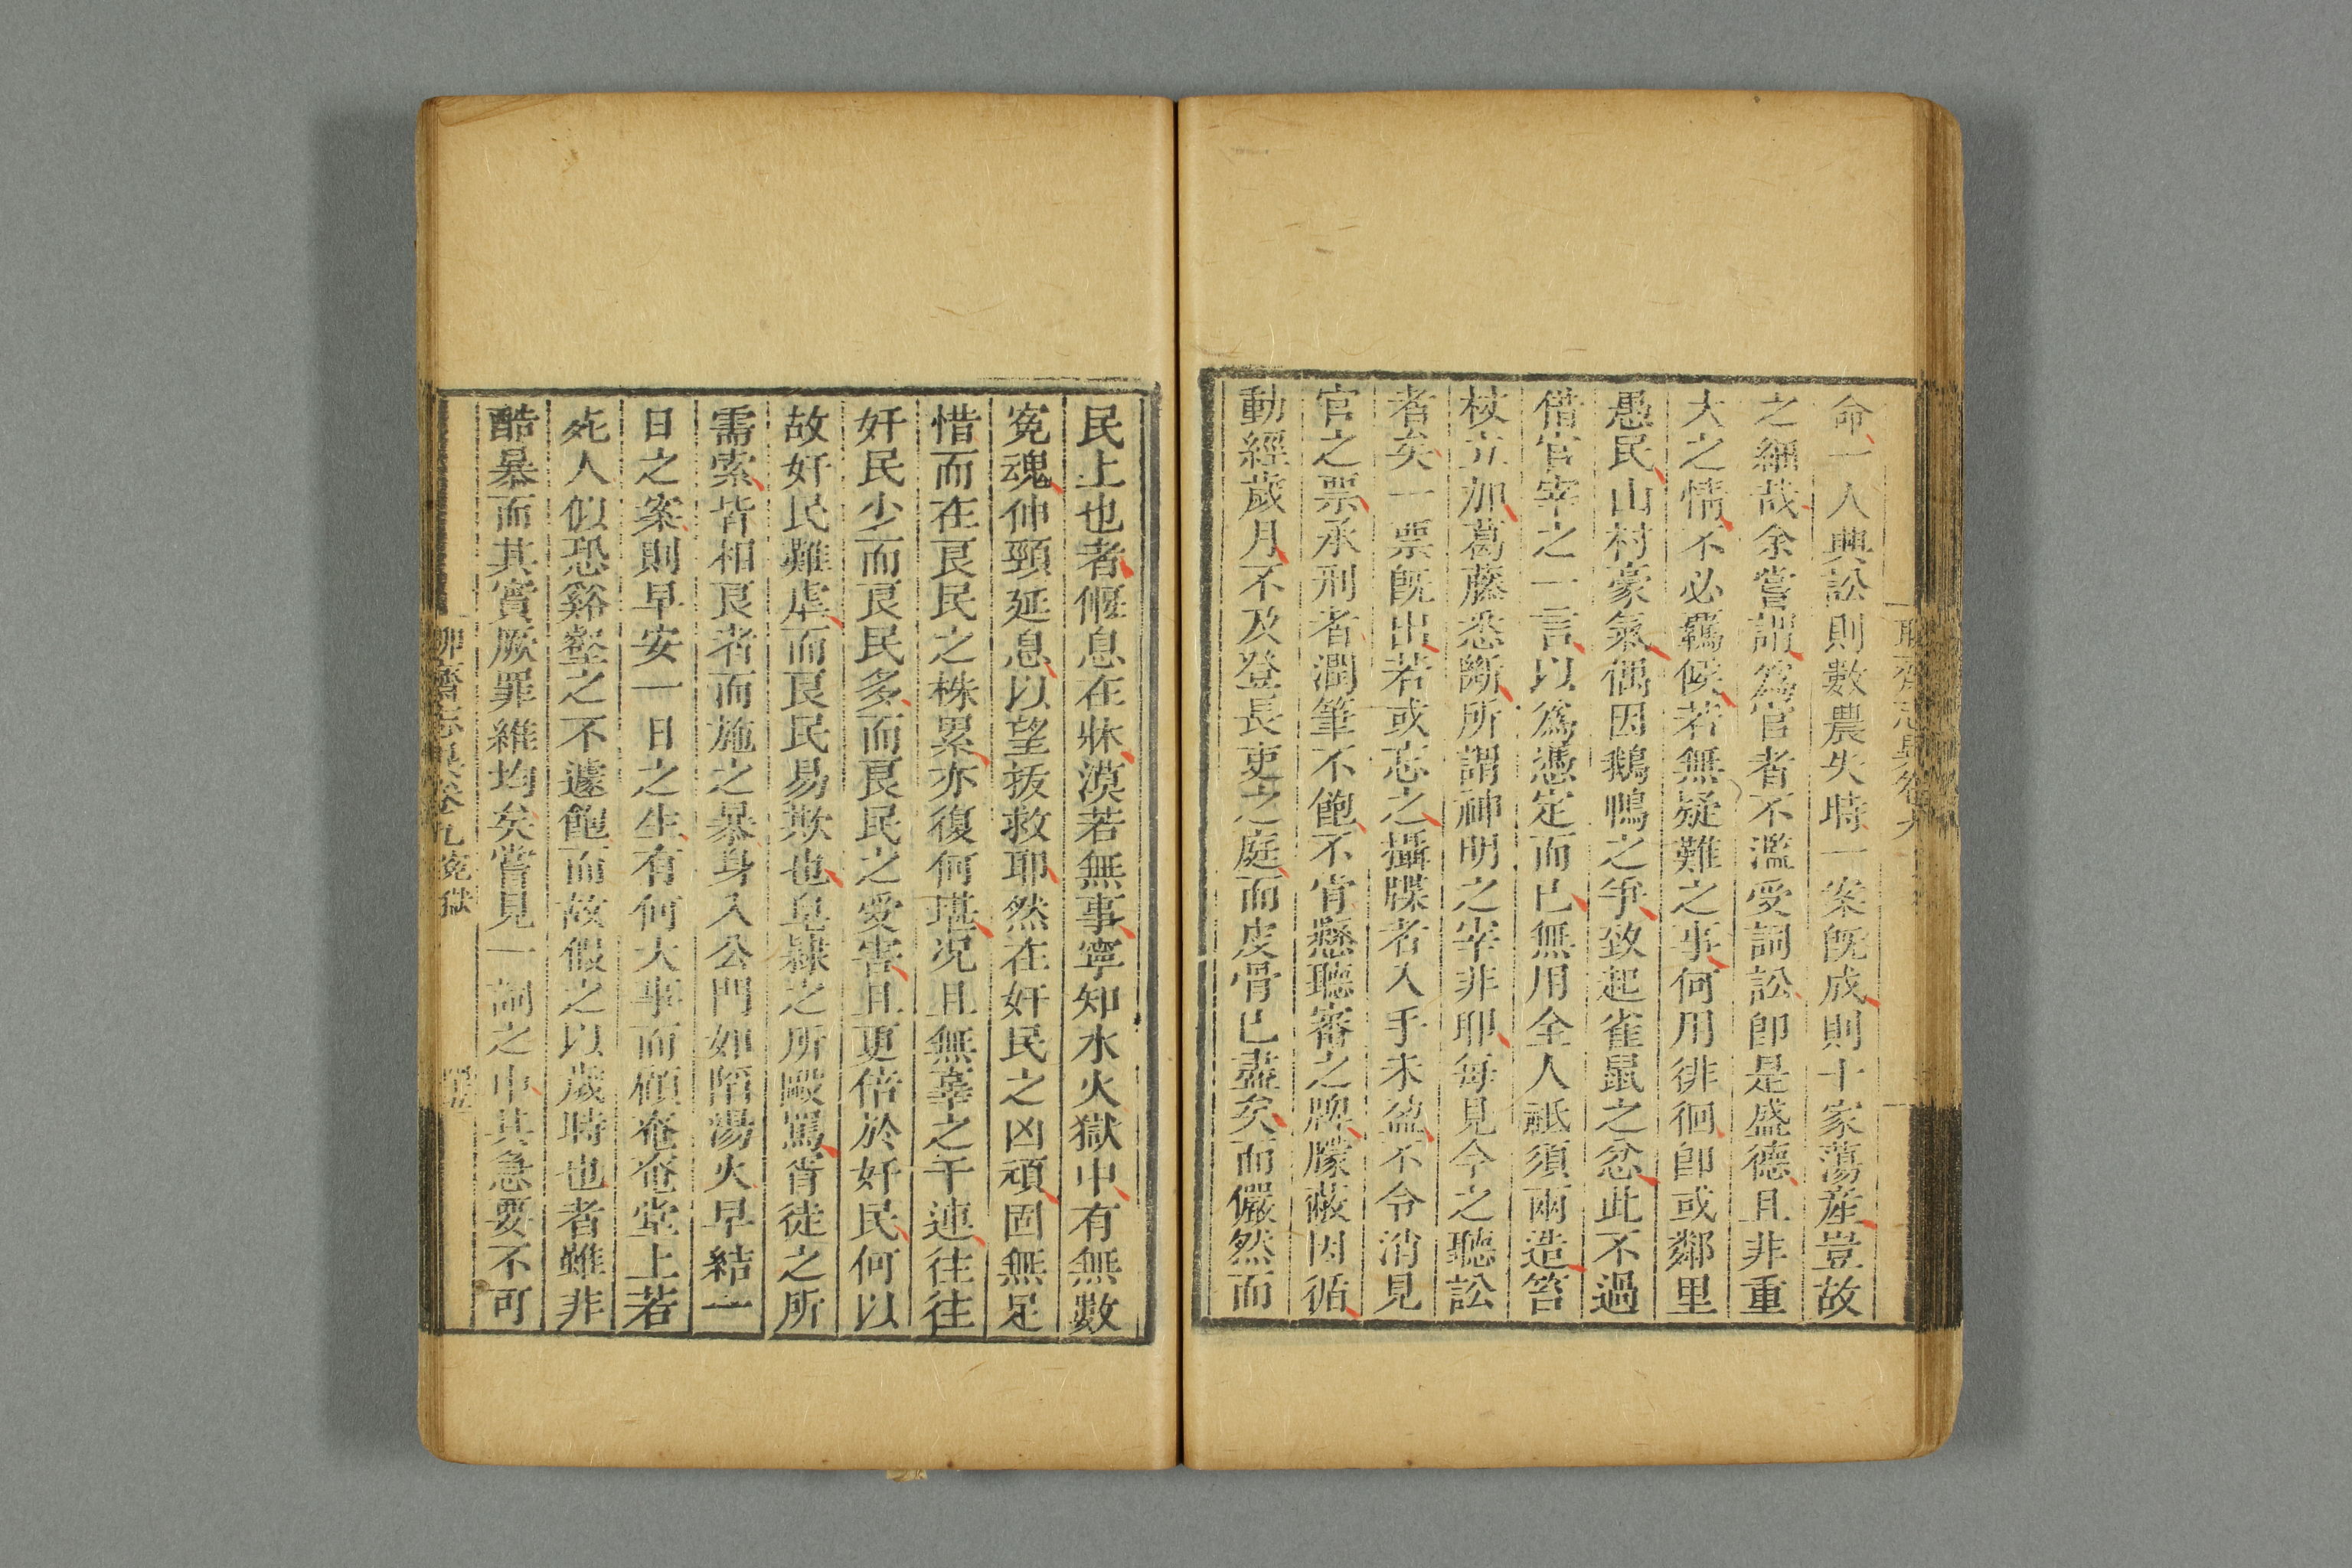 命一人興訟則數農失時一案旣成則十家蕩産豈故
之細哉余嘗謂爲官者不濫受詞訟卽是盛德且非重
大之情不必羈候若無疑難之事何用徘徊卽或鄰里
愚民山村豪氣偶因鵝鴨之爭致起雀鼠之忿此不過
借官宰之一言以爲憑定而已無用全人祗須兩造笞
杖立加葛藤悉斷所謂神明之宰非耶每見今之聽訟
者矣一票旣出若或忘之攝牒者入手未盈不令消見
官之票承刑者潤筆不飽不肯懸聽審之牌朦蔽因循
動經歲月不及登長吏之庭而皮骨已盡矣而儼然而
民上也者偃息在牀漠若無事寧知水火獄中有無數
寃魂伸頸延息以望拔救耶然在奸民之凶頑固無足
惜而在良民之株累亦復何堪况且無辜之干連往往
奸民少而良民多而良民之受害且更倍於奸民何以
故奸民難虐而良民易欺也皂隸之所毆罵胥徒之所
需索皆相良者而施之暴身入公門如陷湯火早結一
日之案則早安一日之生有何大事而顧奄奄堂上若
死人似恐谿壑之不遽飽而故假之以歲時也者雖非
酷暴而其實厥罪維均矣嘗見一詞之中其急要不可
聊齋志異卷九寃獄